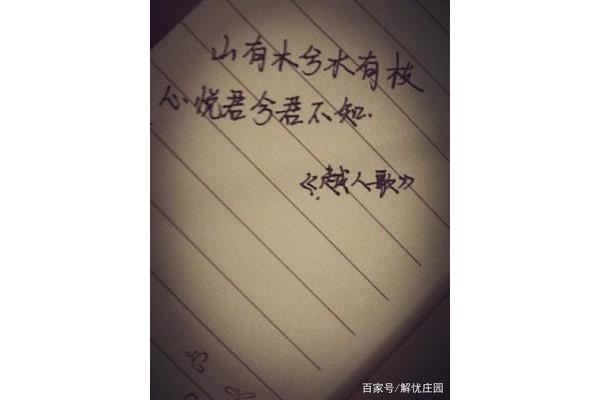 山有木兮木有枝
心悦君兮君不知.
《越人歌》
百家号/解忧庄园